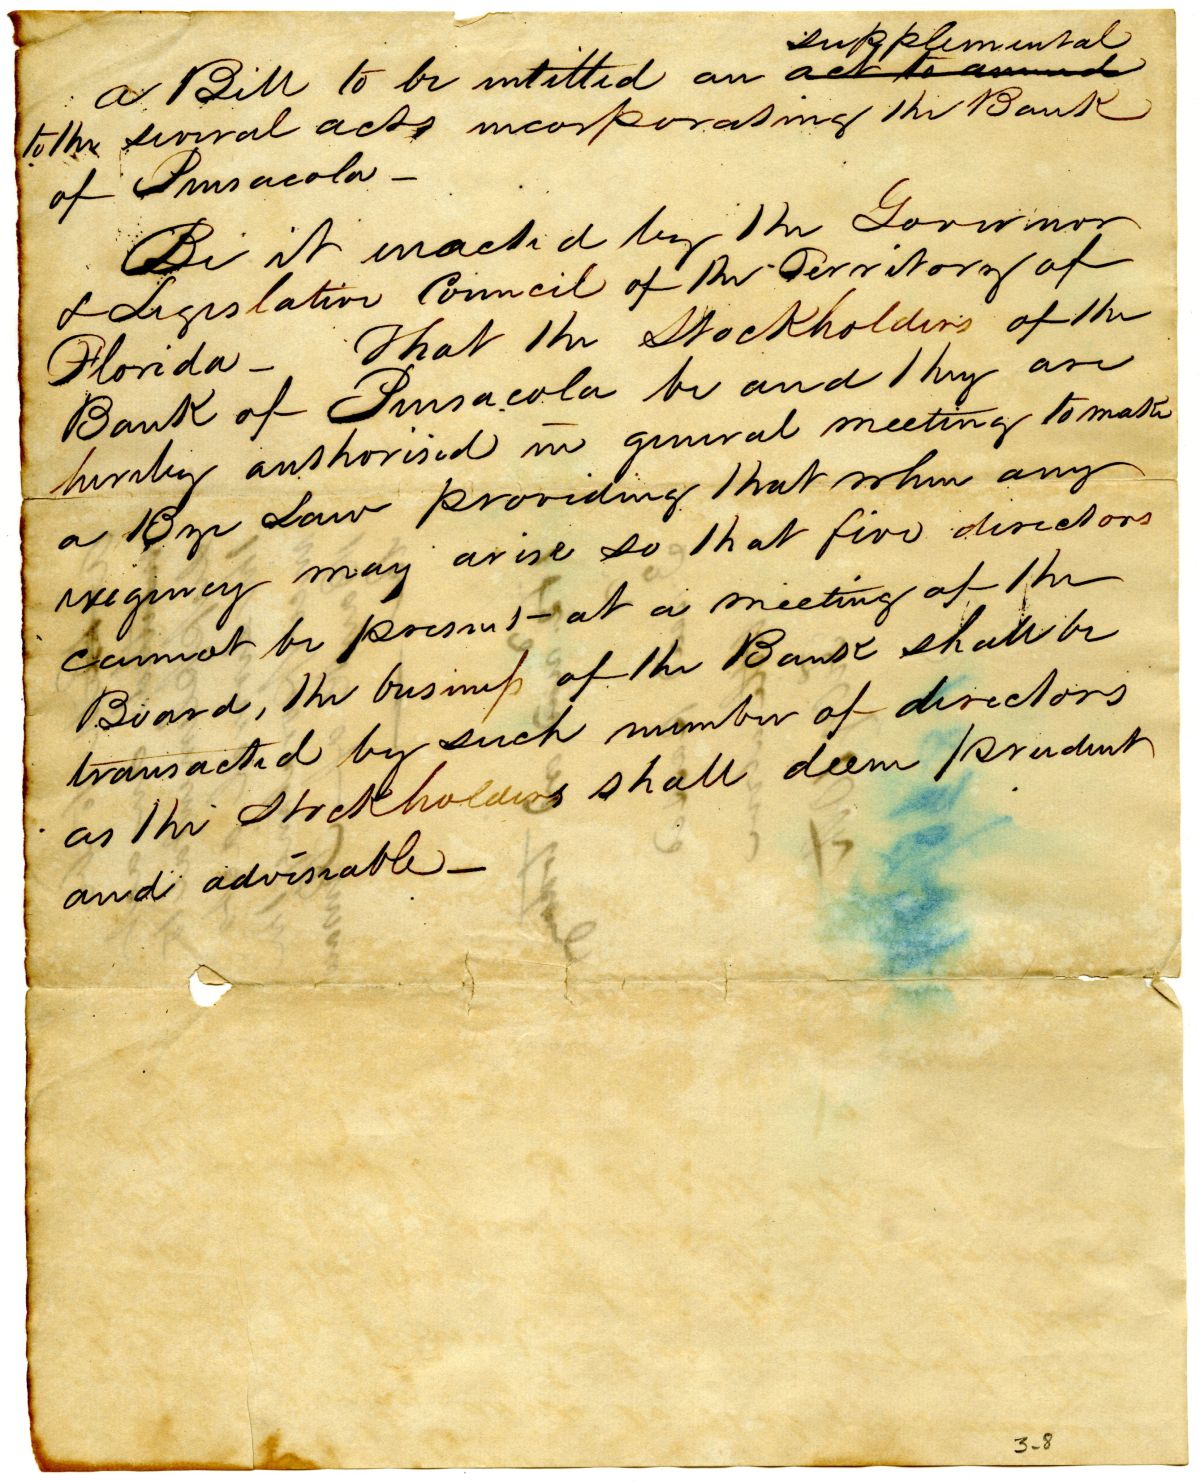 supplemental
a Bill to be intitled an act to amend
to the several acts incorporating the Bank
of Pensacola –
Be it enacted by the Governor
& Legislative Council of the Territory of
Florida – That the Stockholders of the
Bank of Pensacola be and they are
hereby authorised in general meeting to make
a Bye Law providing that when any
exigency may arise so that five directors
cannot be present – at a meeting of the
Board, the business of the Bank shall be
transacted by such number of directors
as the Stockholders shall deem prudent
and adviseable –
3-8